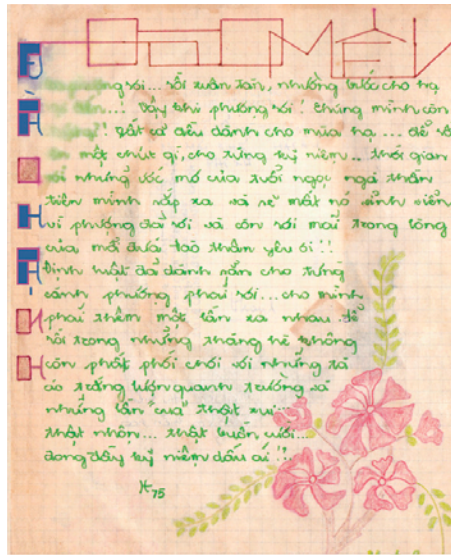 rơi... rồi xuân tàn, nhường bước cho hạ
đến.... Vậy khi phượng rơi! Chúng mình còn
!! Tất cả đều dành cho mùa hạ.... để rồi
một chút gì, cho từng kỷ niệm... thời gian
với những ước mơ của tuổi ngọc ngà thần
tiên mình sắp xa và sẽ mất nó vĩnh viễn
vì phượng đã rơi và còn rơi mãi trong lòng
của mỗi đứa tao thân yêu ơi !!
Định luật đã dành sẵn cho từng
cánh phượng phải rơi...cho mình
phải thêm một lần xa nhau để
rồi trong những tháng hè không
còn phất phới với những tà
áo trắng lượn quanh trường và
những lần "cua" thật vui...
thật nhộn... thật buồn cười...
dong đầy kỷ niệm dấu ái !!
75